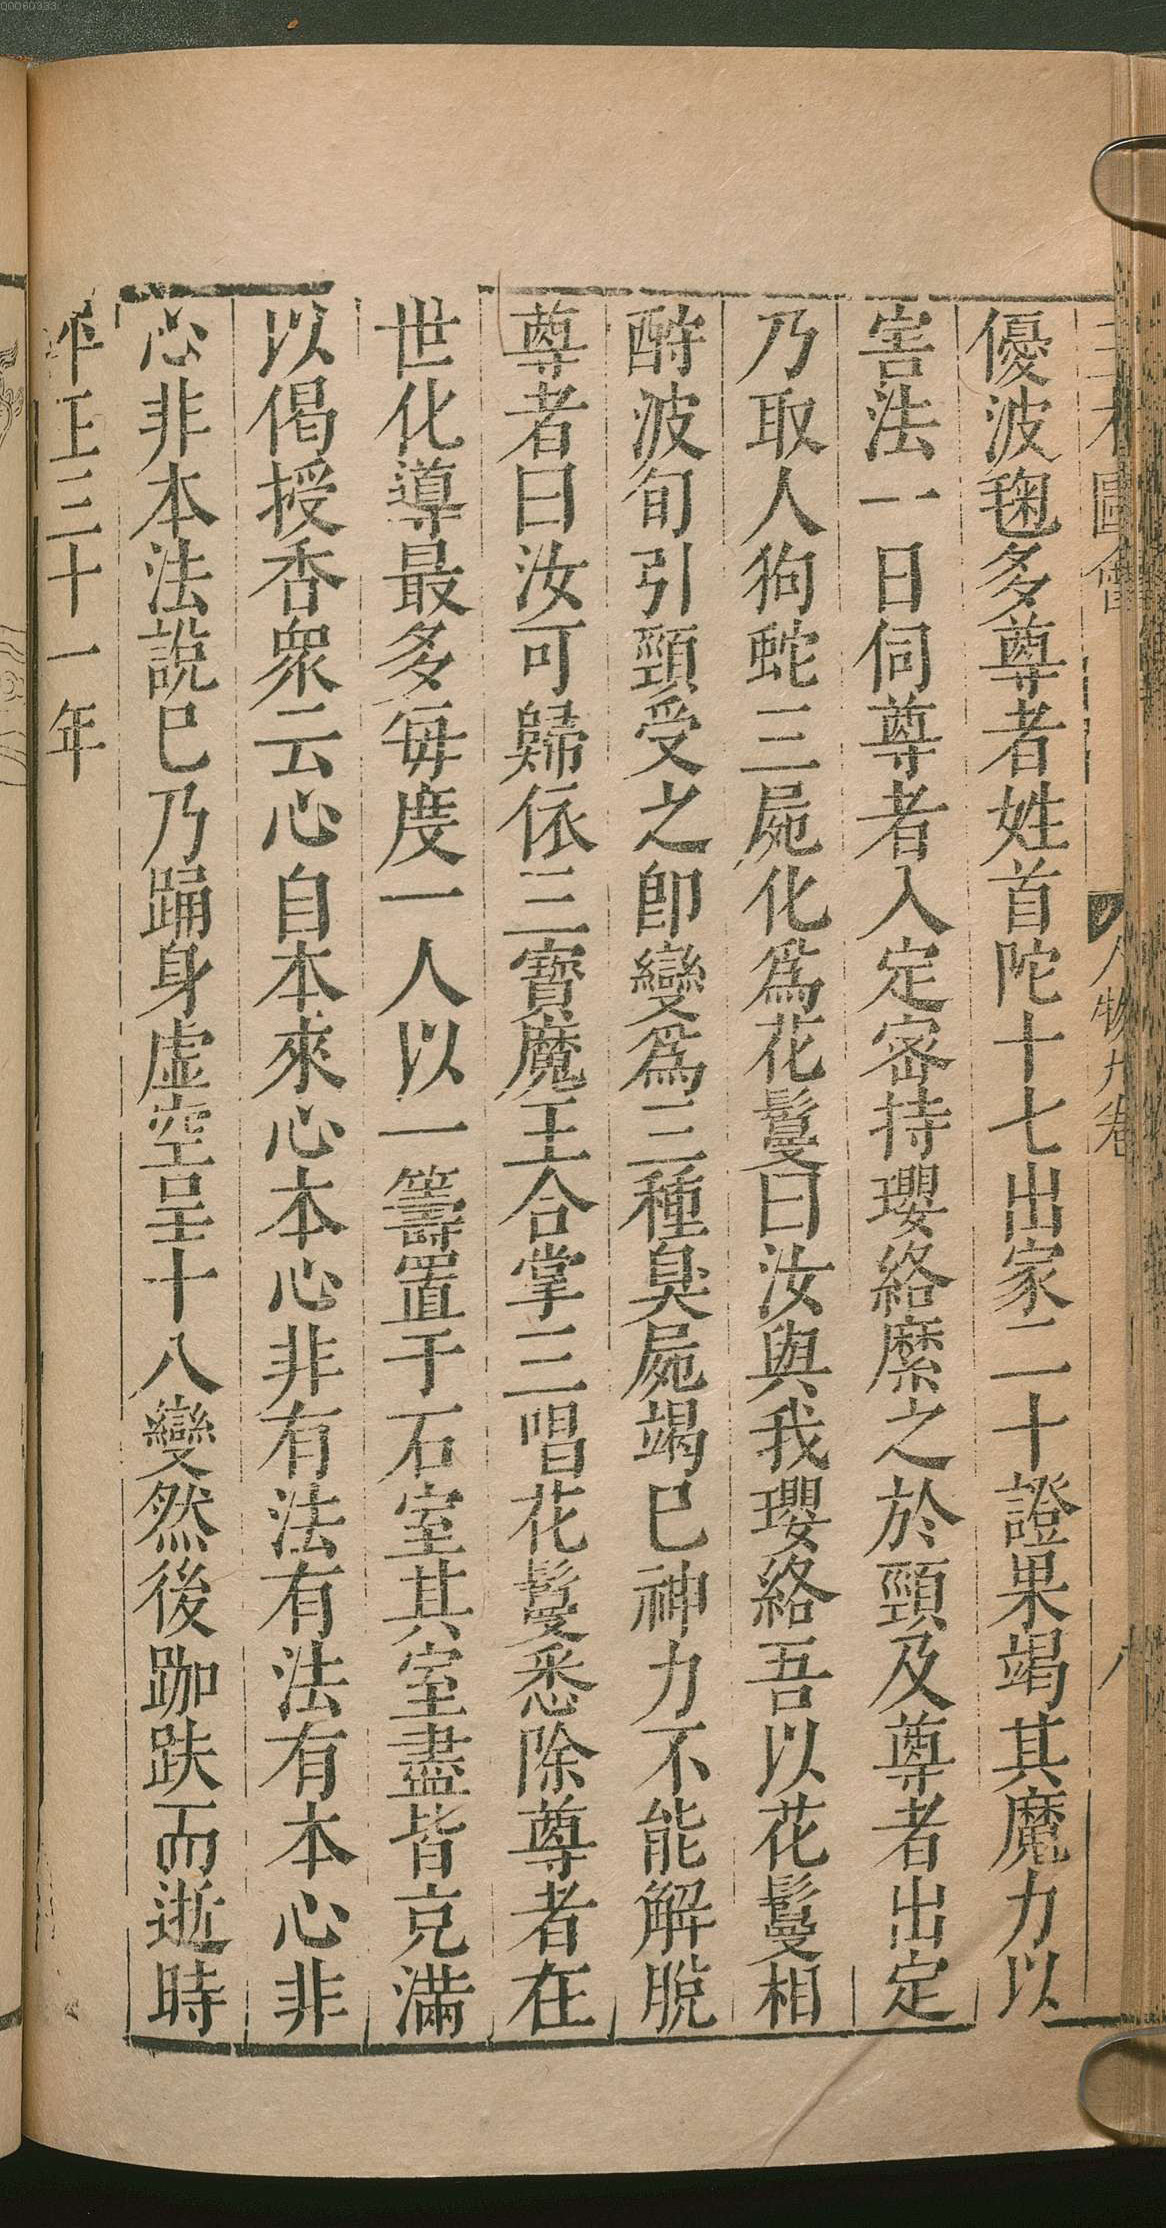 00060333
三才圖會 人物九卷 八
優波毱多尊者姓首陀十七出家二十證果竭其魔力以
害法一日伺尊者入定密持瓔絡縻之於頸及尊者出定
乃取人狗蛇三屍化爲花鬘曰汝與我瓔絡吾以花鬘相
酧波旬引頸受之卽變爲三種臭屍竭巳神力不能解脫
尊者曰汝可歸依三寶魔王合掌三唱花鬘悉除尊者在
世化導最多每度一人以一籌置于石室其室盡皆克滿
以偈授香衆云心自本來心本心非有法有法有本心非
心非本法說巳乃踊身虛空呈十八變然後跏趺而逝時
乍正三十一年